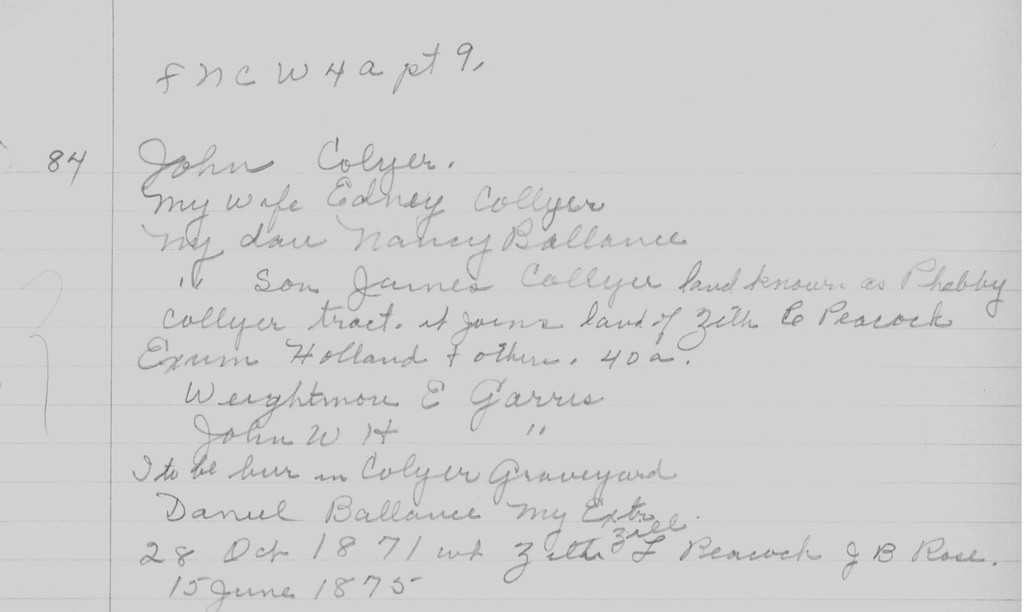 F N C W 4 a pt 9,
84 John Colyer.
My wife Edney Collyer
My dau Nancy Ballance
" Son James Collyer land known as Phebby
Collyer tract. it joins land of Zilh C Peacock
Exum Holland & others. 40 a.
Weightmon E Garris
John W H "
I to be bur in Colyer Graveyard
Daniel Ballance My Extr.
28 Oct 1871 wt L Peacock J B Rose.
15 June 1875